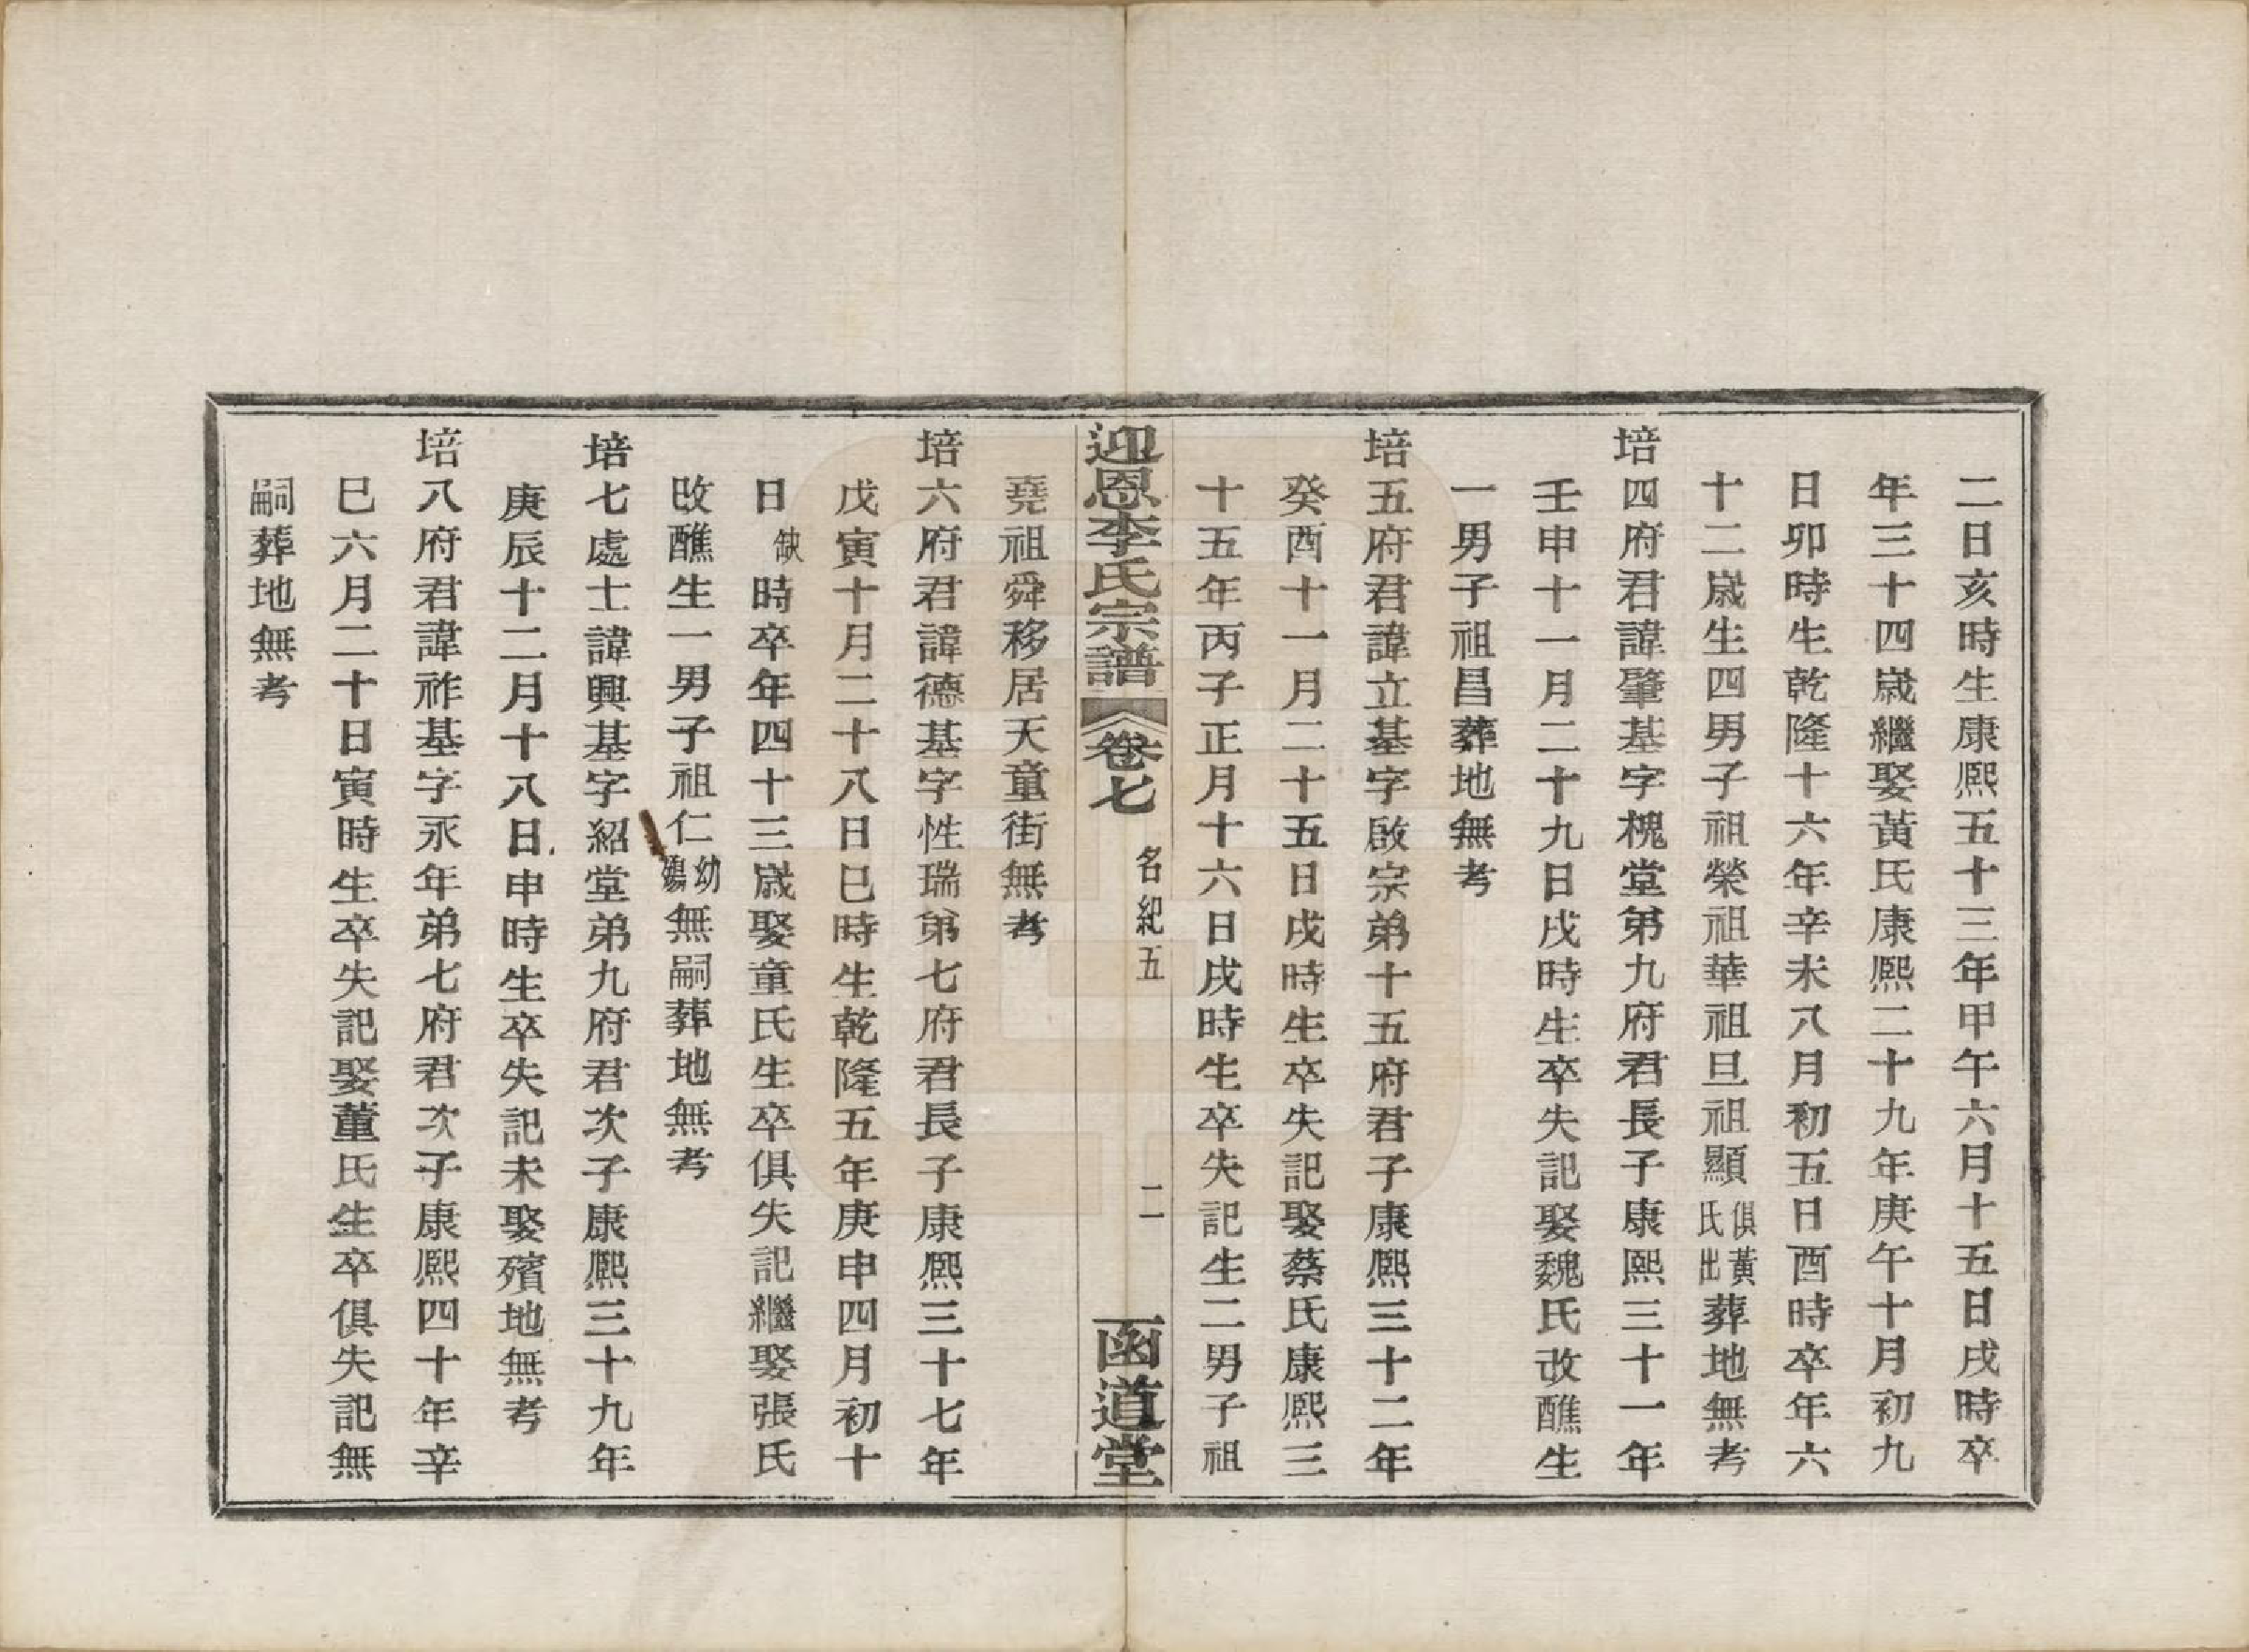 二日亥時生康熙五十三年甲午六月十五日戌時卒
年三十四歲繼娶黃氏康熙二十九年庚午十月初九
日卯時生乾隆十六年辛未八月初五日酉時卒年六
十二歲生四男子祖榮祖華祖旦祖顯俱黃氏出葬地無考
培四府君諱肇基字槐堂第九府君長子康熙三十一年
壬申十一月二十九日戌時生卒失記娶魏氏改醮生
一男子祖昌葬地無考
培五府君諱立基字啟宗弟十五府君子康熙三十二年
癸酉十一月二十五日戌時生卒失記娶蔡氏康熙三
十五年丙子正月十六日戌時生卒失記生二男子祖
迎恩李氏宗譜
卷七
名紀五
二
函道堂
堯祖舜移居天童街無考
培六府君諱德基字性瑞第七府君長子康熙三十七年
戊寅十月二十八日巳時生乾隆五年庚申四月初十
日缺時卒年四十三歲娶童氏生卒俱失記繼娶張氏
改醮生一男子祖仁幼殤無嗣葬地無考
培七處士諱興基字紹堂弟九府君次子康熙三十九年
庚辰十二月十八日申時生卒失記未娶殯地無考
培八府君諱祚基字永年弟七府君次子康熙四十年辛
巳六月二十日寅時生卒失記娶董氏生卒俱失記無
嗣葬地無考